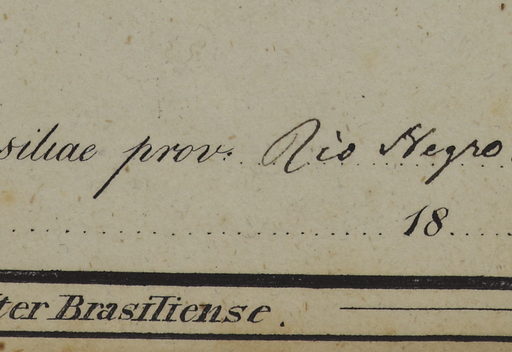 siliae prov: Rio Negro.
18
ter Brasiliense.